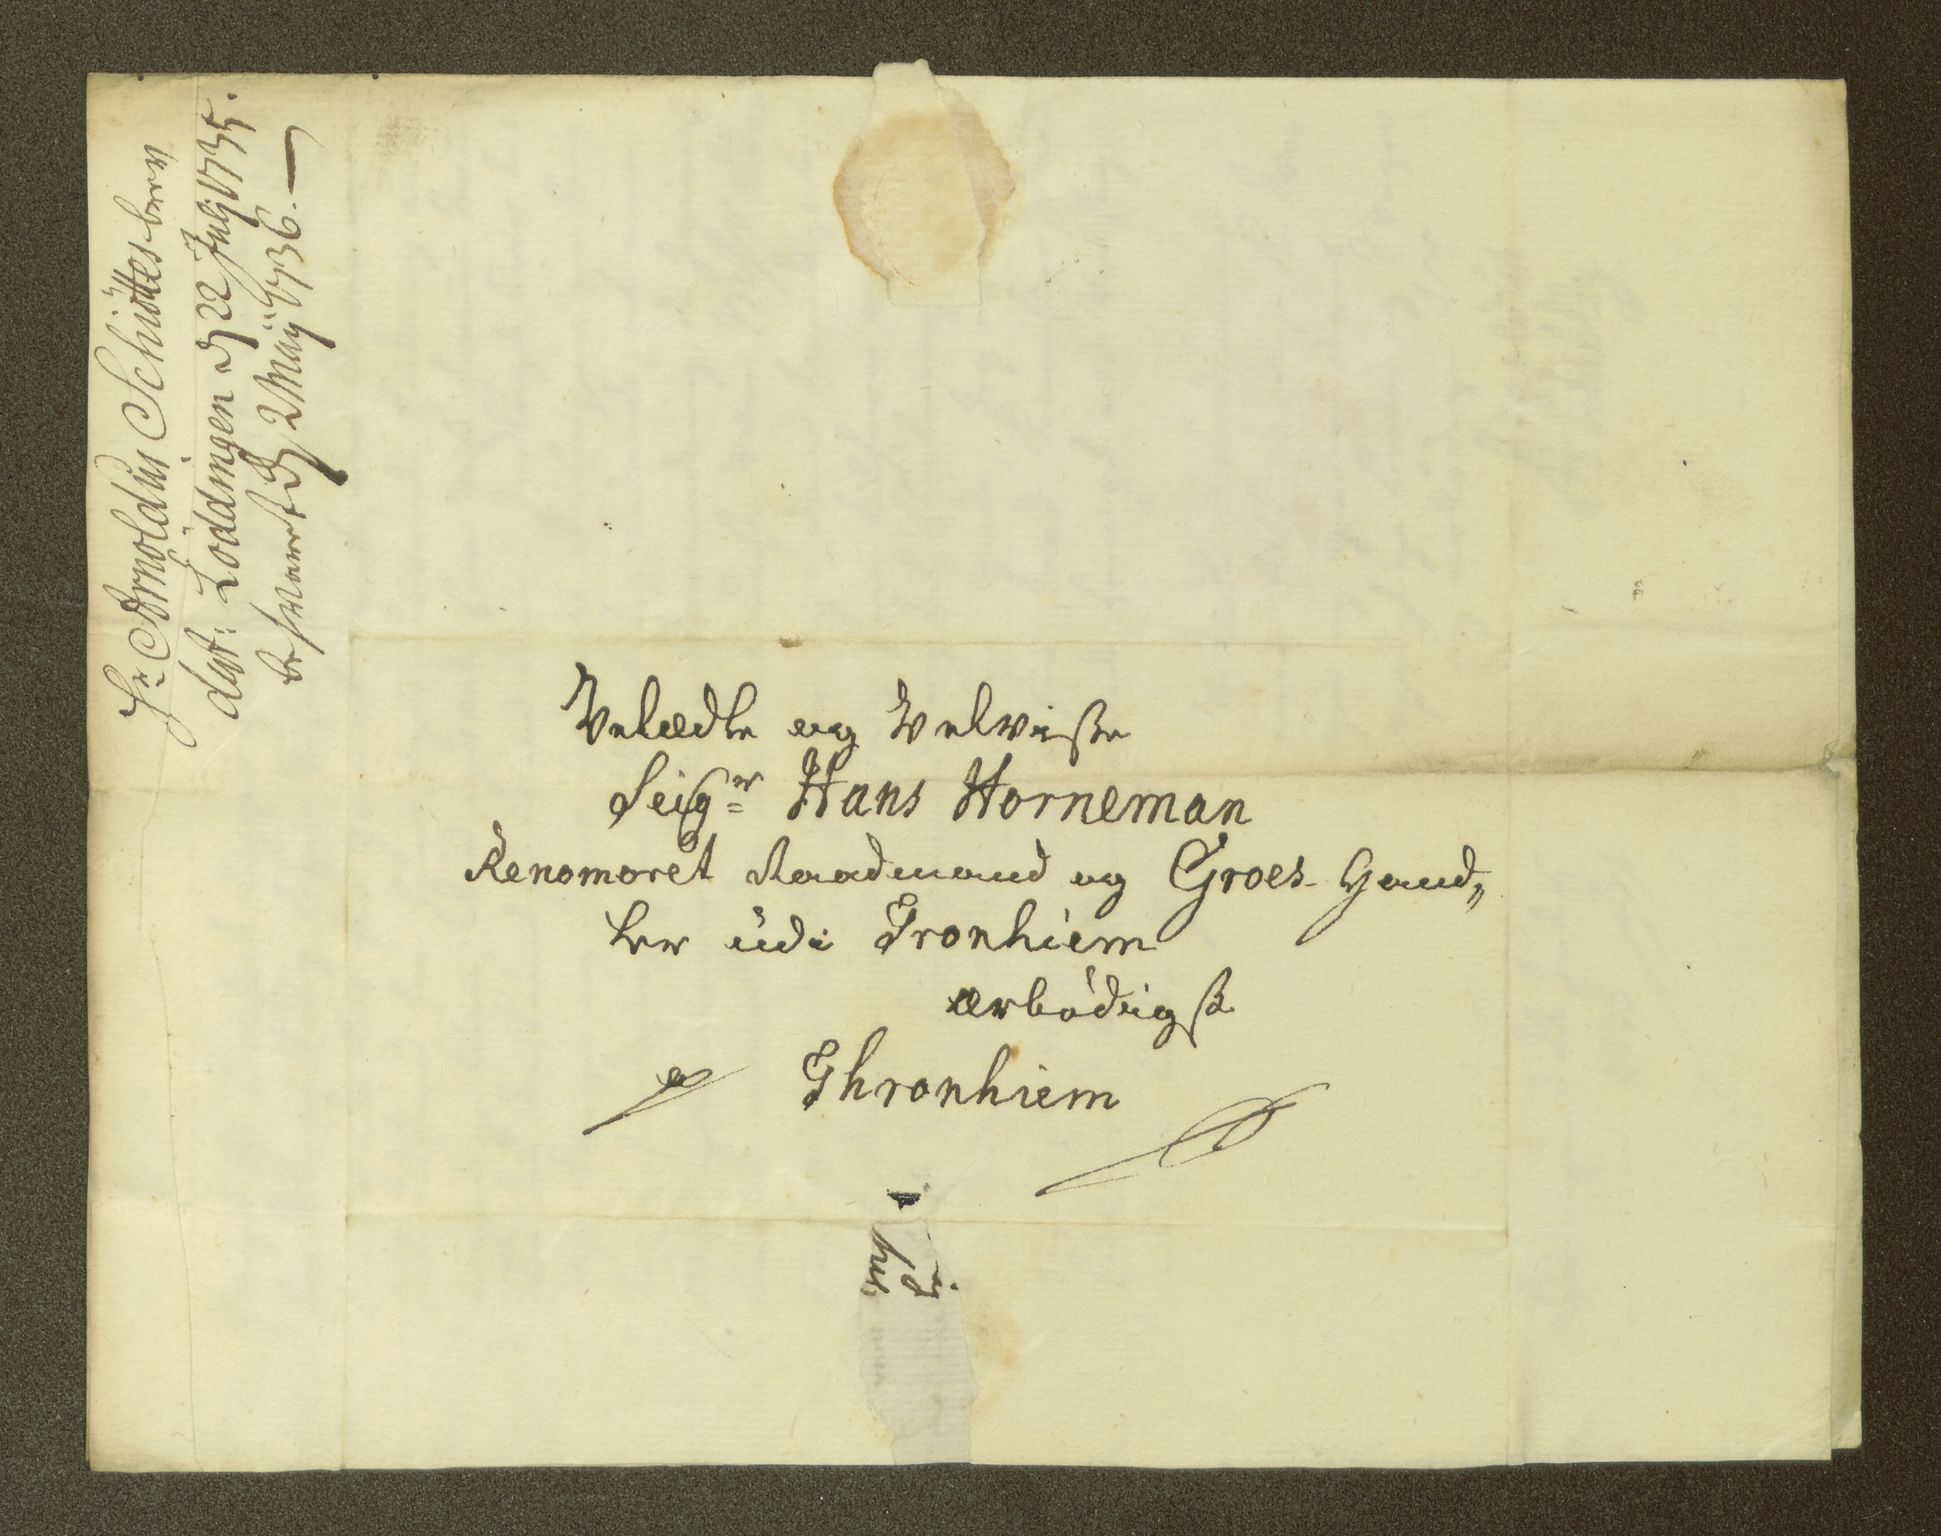 Hr: Arnoldus Schüttes brev
dat: Loddingen d 22 Julj 1735.
besvaret d 2 Maij 1736. —
Velædle og Velviise
Seigr Hans Horneman
Renomeret Raadmand og Groes-Hand„
ler üdi Tronhiem
ærbödigst
Thronhiem